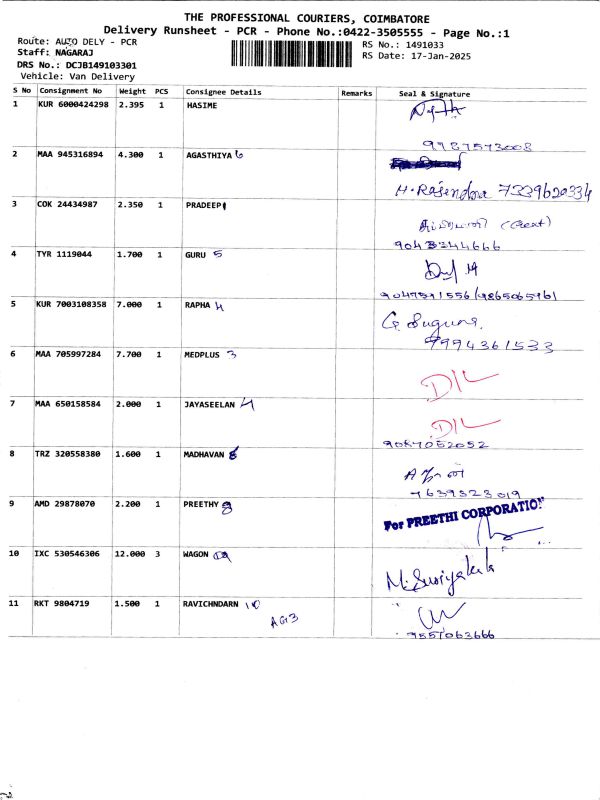 THE PROFESSIONAL COURIERS, COIMBATORE
Delivery Runsheet - PCR - Phone No.:0422-3505555 - Page No.:1
Route: AUTO DELY - PCR
Staff: NAGARAJ
DRS No.: DCJB149103301
Vehicle: Van Delivery
RS No.: 1491033
RS Date: 17-Jan-2025
S No Consignment No Weight PCS Consignee Details Remarks Seal & Signature
1 KUR 6000424298 2.395 1 HASIME
9987573008
2 MAA 945316894 4.300 1 AGASTHIYA 6
H. Rajendra 7339620334
3 COK 24434987 2.350 1 PRADEEP
9043344666
4 TYR 1119044 1.700 1 GURU 5
9047591556/9865065961
5 KUR 7003108358 7.000 1 RAPHA 4
G. Suguna.
9994361533
6 MAA 705997284 7.700 1 MEDPLUS 3
D/L
7 MAA 650158584 2.000 1 JAYASEELAN 4
D/L
8 TRZ 320558380 1.600 1 MADHAVAN 8
7639323019
9 AMD 29878070 2.200 1 PREETHY
For PREETHI CORPORATION
10 IXC 530546306 12.000 3 WAGON
M. Suriyakala
11 RKT 9804719 1.500 1 RAVICHNDARN 10
AG3
9551063666